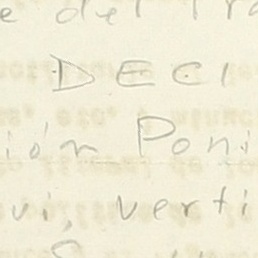 e del Tra
DECI
ión Poni
vi, verti